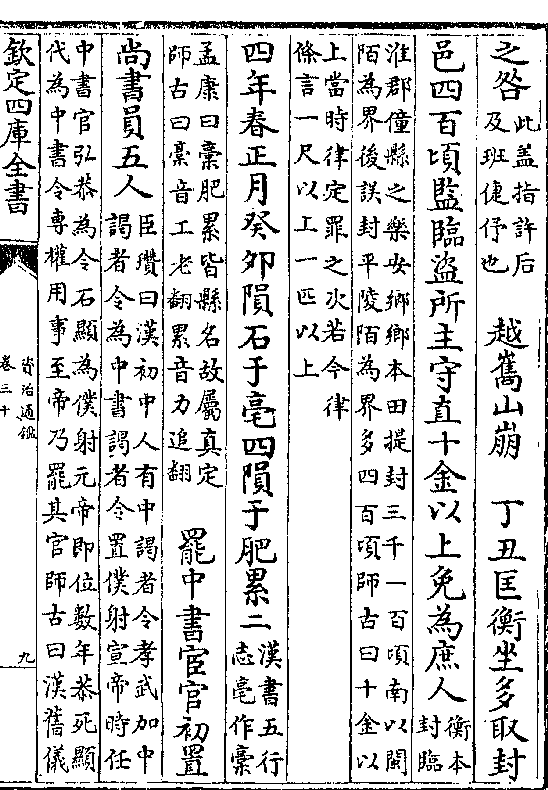 之咎此盖指許后
及班倢伃也 越嶲山崩 丁丑匡衡坐多取封
邑四百頃監臨盜所主守直十金以上免為庶人衡本
封臨
淮郡僮縣之樂安鄉鄉本田提封三千一百頃南以閩
陌為界後誤封平陵陌為界多四百頃師古曰十金以
上當時律定罪之次若今律
條言一尺以上一匹以上
四年春正月癸卯隕石于亳四隕于肥累二漢書五行
志亳作槀
孟康曰槀肥累皆縣名故屬真定
師古曰槀音工老翻累音力追翻 罷中書宦官初置
尚書員五人臣瓚曰漢初中人有中謁者令孝武加中
謁者令為中書謁者令置僕射宣帝時任
中書官弘恭為令石顯為僕射元帝即位數年恭死顯
代為中書令專權用事至帝乃罷其官師古曰漢舊儀
欽定四庫全書
資治通鑑
卷三十
九